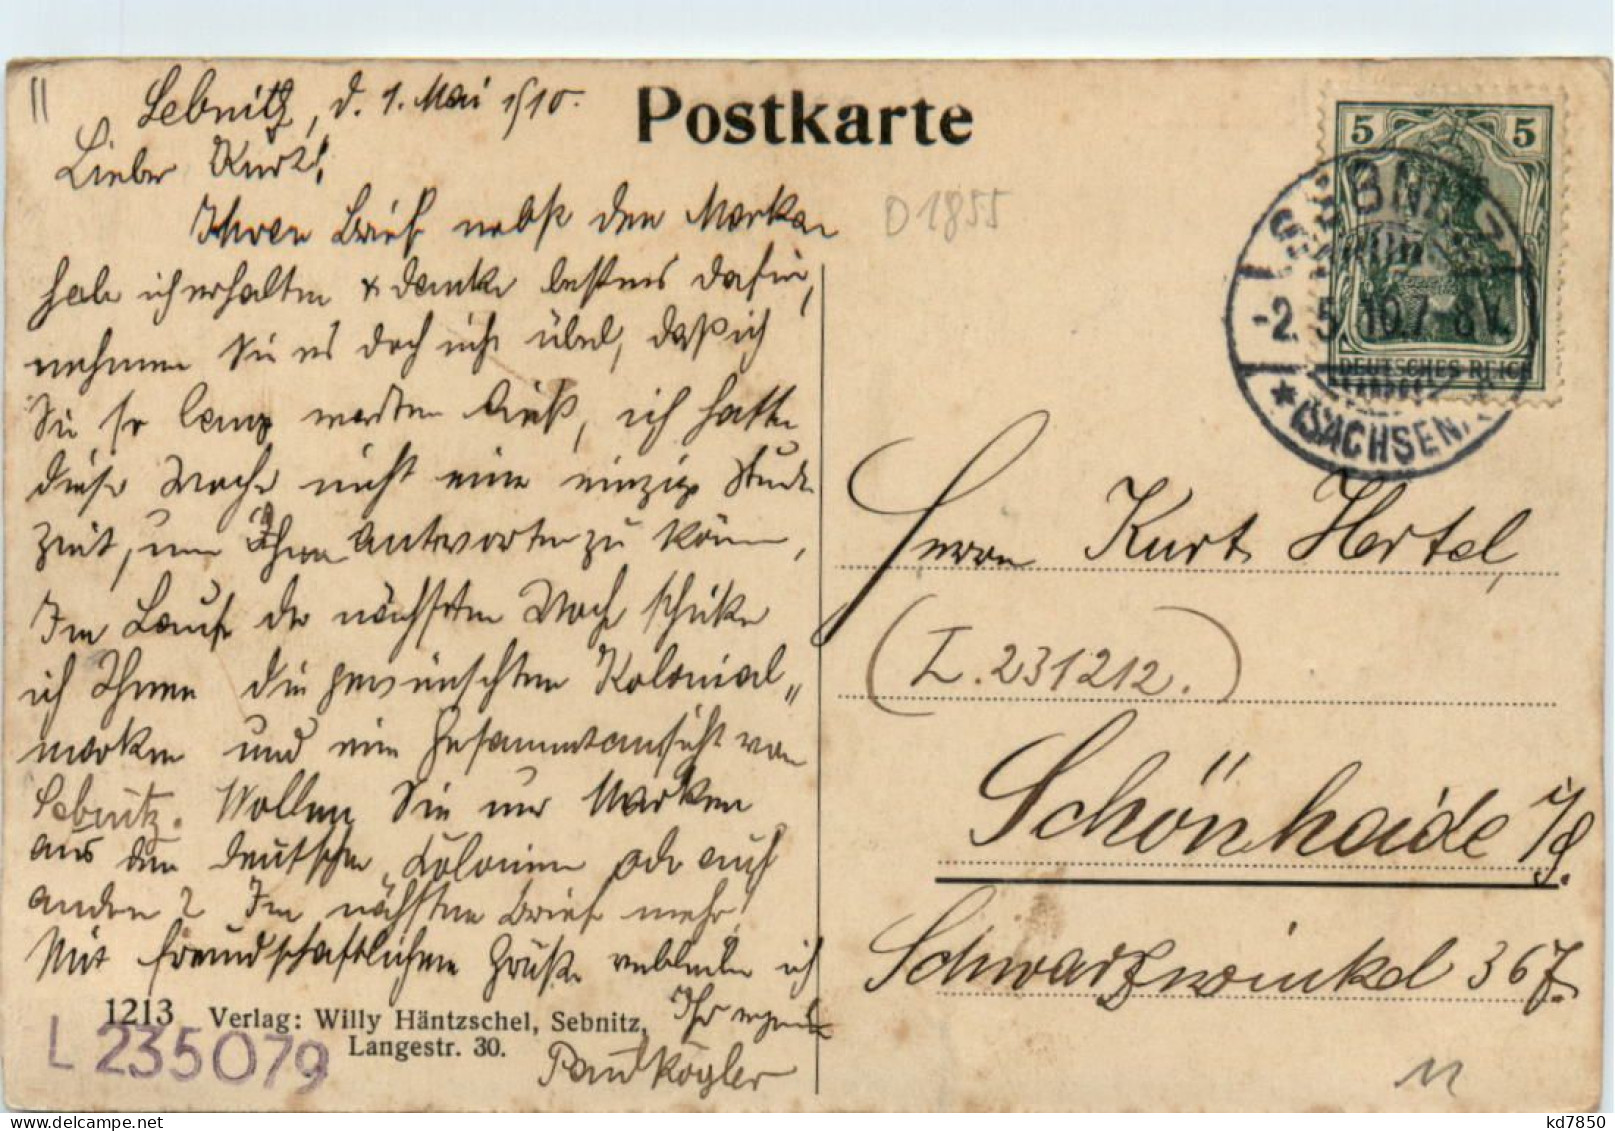 11
Sebnitz, d. 1. Mai 1910.
Lieber Kurt!
Ihren Brief nebst den Marken
habe ich erhalten & danke bestens dafür,
nehmen Sie es doch nicht übel, daß ich
Sie so lang warten ließ, ich hatte
diese Woche nicht eine einzige Stunde
Zeit, um Ihnen antworten zu können,
Im Laufe der nächsten Woche schicke
ich Ihnen die gewünschten Kolonial„
marken und eine Gesammtansicht von
Sebnitz. Wollen Sie nur Marken
aus den deutschen Colonien oder auch
andern? Im nächsten Brief mehr!
Mit freundschaftlichen Grüße verbleibe ich
Ihr
Paul Kögler
1213 Verlag: Willy Häntzschel, Sebnitz,
Langestr. 30.
L 235079
Postkarte
01855
5 5
DEUTSCHES REICH
SEBNITZ
-2.5.10.7-8V.
* (SACHSEN)
Herrn Kurt Hertel,
(I. 231212.)
Schönhaide i/S.
Schwarzwinkel 367.
11
kd7850
delcampe.net